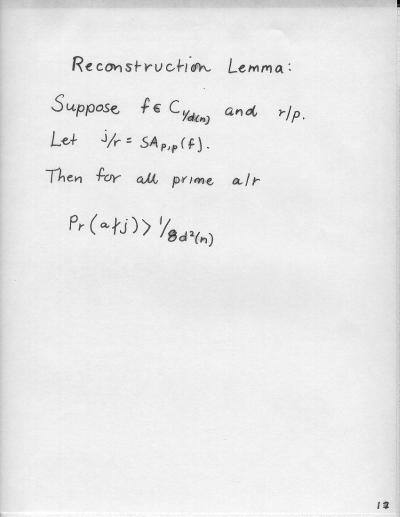 Reconstruction Lemma:
Suppose f ∈ C_{1/d(n)} and r/p.
Let j/r = SA_{p,p}(f).
Then for all prime a/r
Pr(a∤j) > 1/8d²(n)
12